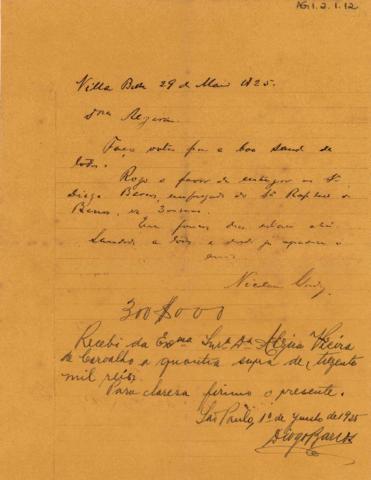 AG.1.2.1.12
Villa Bella 29 de Maio 1925.
Faço votos por a boa saude de
todos.
Rogo o favor de entregar ao Sr.
Diogo Barros, empregado do Sr. Raphael
Barros, rs 300
Em poucos dias estarei ahi
Saudades a todos e
300$000
Recebi da Exma. Snra. Da. Vieira
de Carvalho a quantia supra de trezentos
mil reis.
Para claresa firmo o presente.
São Paulo, 1º de Junho de 1925
Diogo Barros